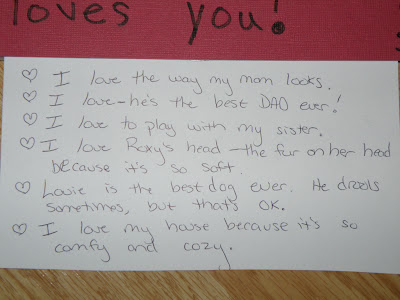 loves you!
♡ I love the way my mom looks.
♡ I love - he's the best DAD ever!
♡ I love to play with my sister.
♡ I love Roxy's head - the fur on her head
because it's so soft.
♡ Louie is the best dog ever. He drools
sometimes, but that's OK.
♡ I love my house because it's so
comfy and cozy.